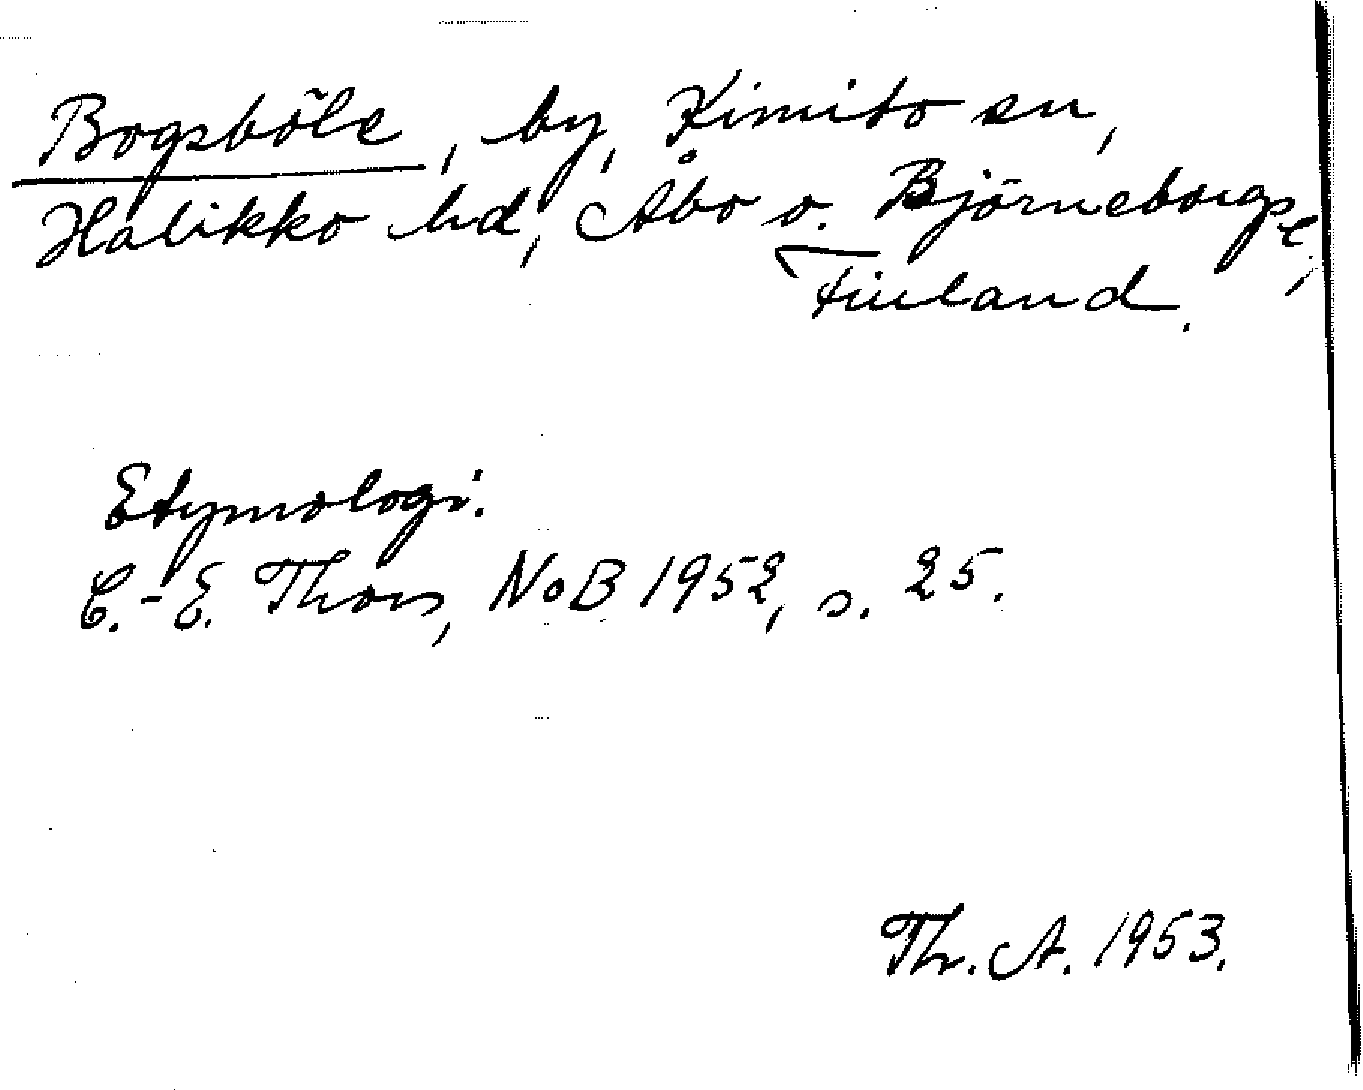 Bogsböle, by, Kimito sn,
Halikko hd, Åbo o. Björneborgs l,
Finland.
Etymologi.
C.-E. Thors, NoB 1952, s. 25.
Th. A. 1953.